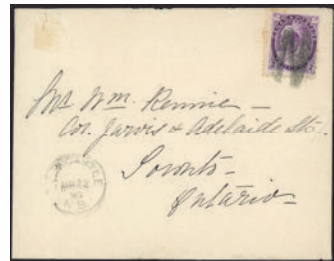 Mr Wm. Rennie –
Cor. Jarvis & Adelaide Sts.
Toronto –
Ontario –
N.B.